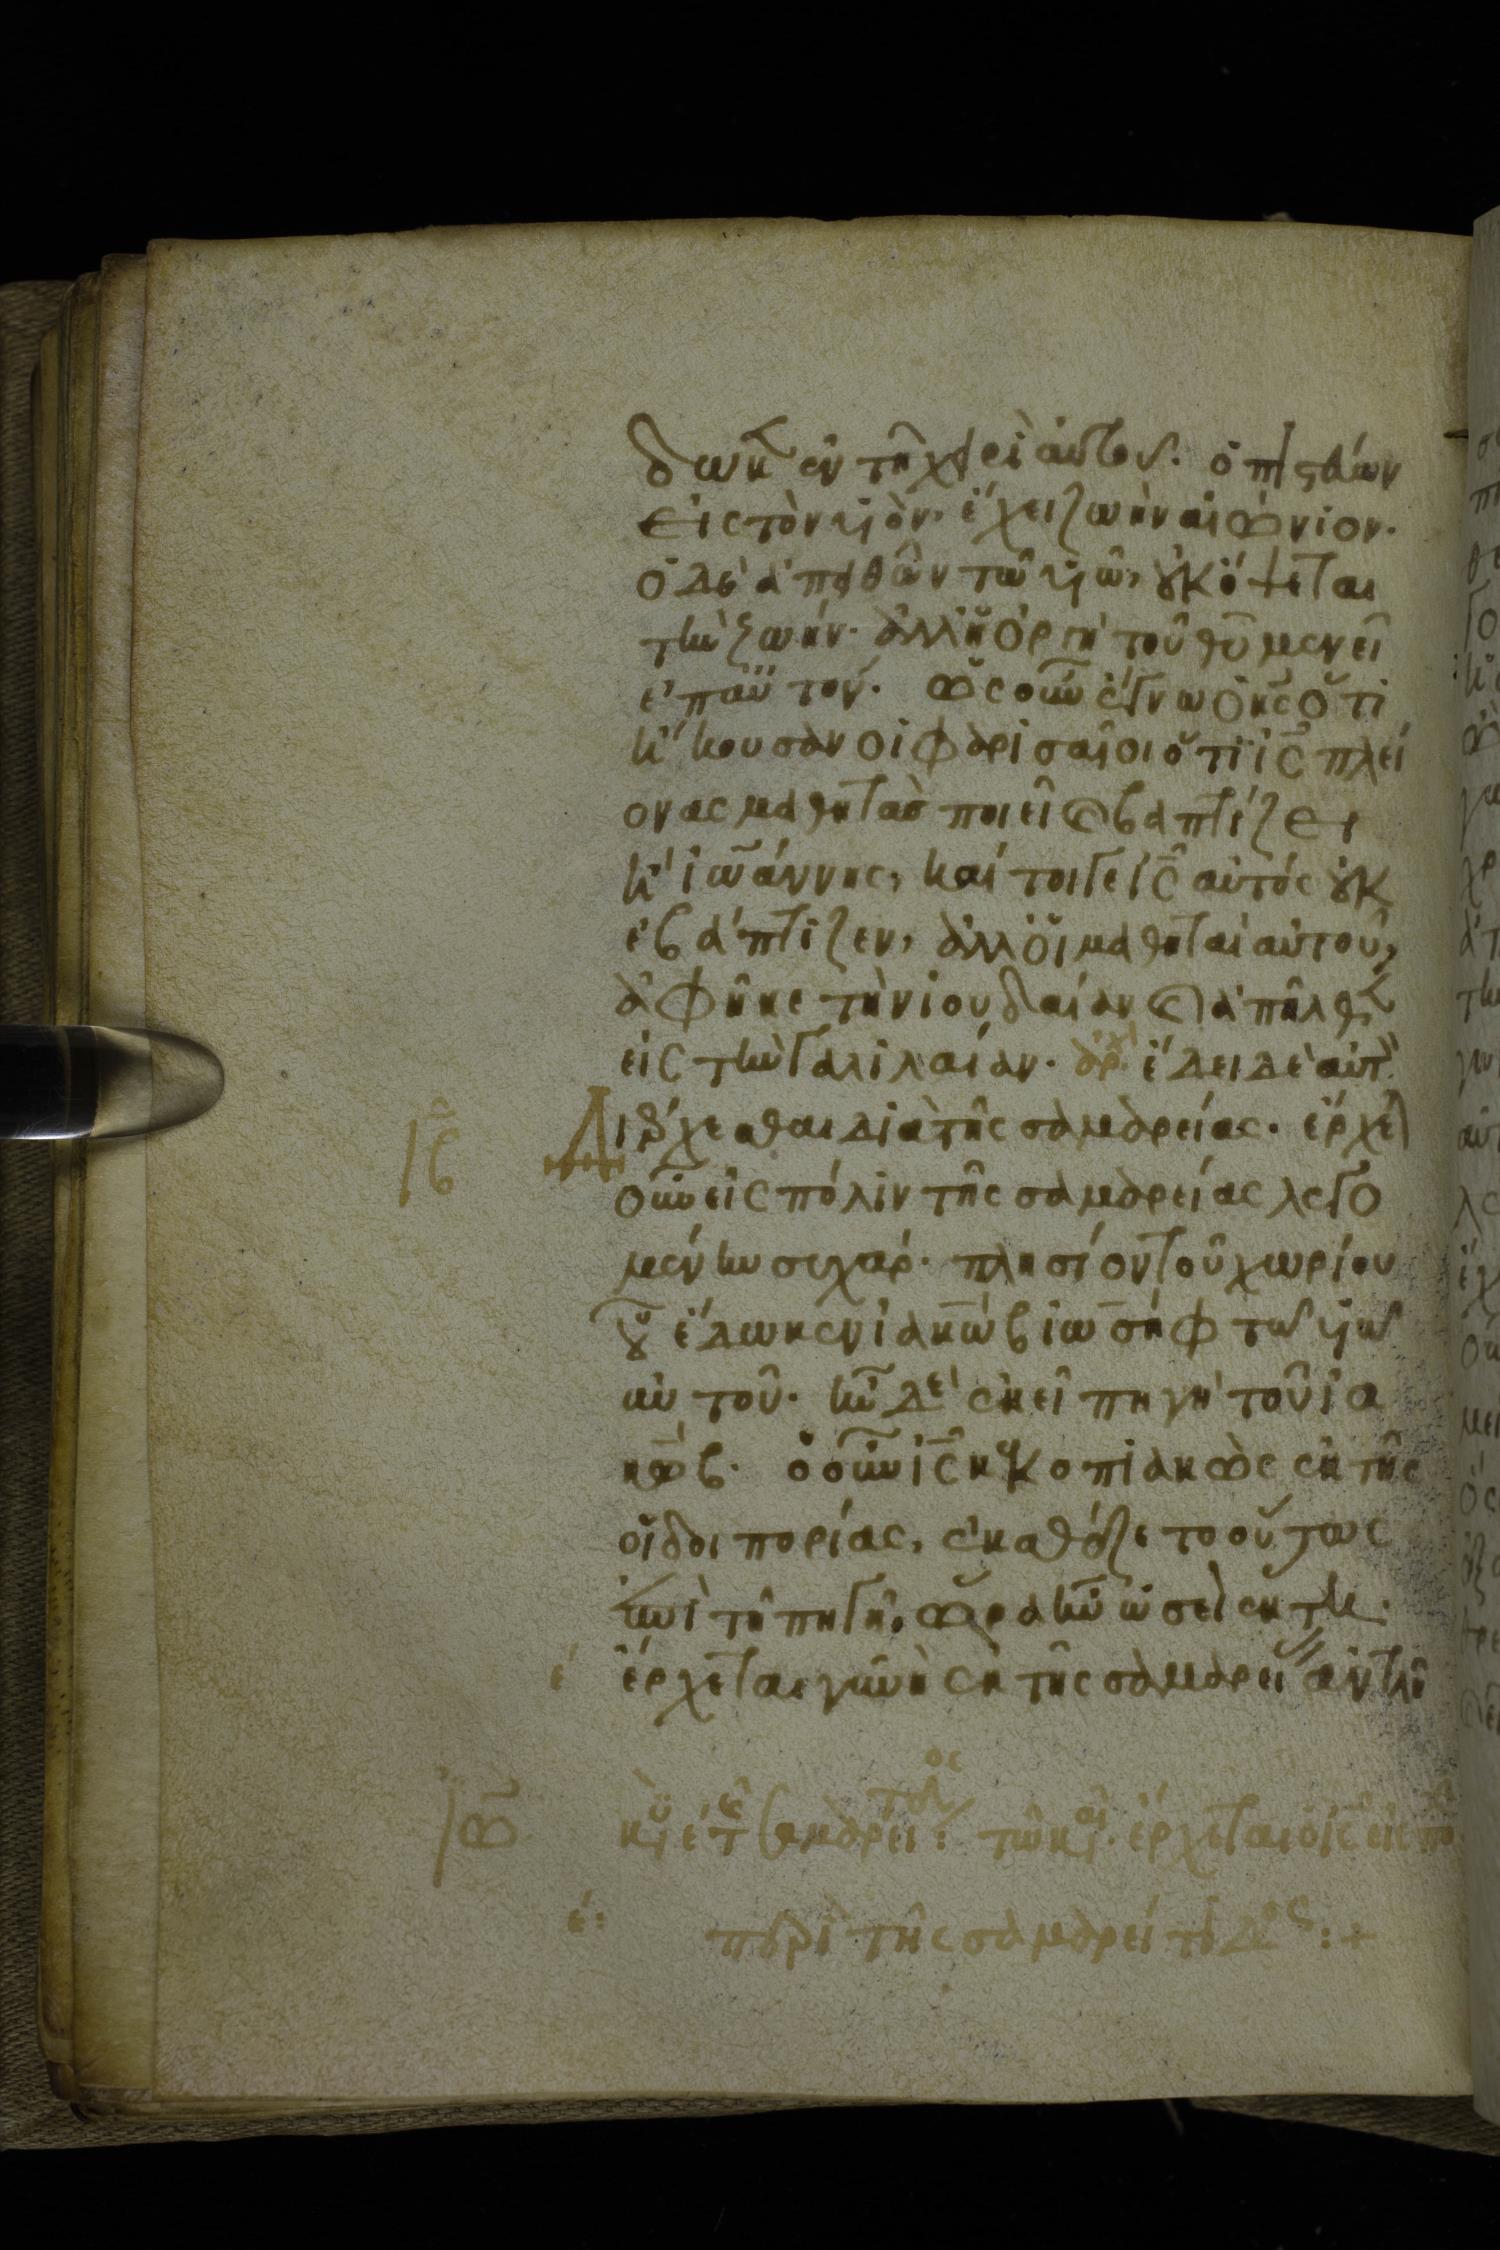 δωκεν ἐν τῆ χειρὶ αὐτοῦ. ὁ πιστεύων
εἰς τὸν υἱὸν, ἔχει ζωὴν αἰώνιον.
ὁ δὲ ἀπειθῶν τῶ υἱῶ, οὐκ ὄψεται
τὴν ζωήν. ἀλλ' ἡ ὀργὴ τοῦ θῡ μενεῖ
ἐπ' αὐτόν. ὡς οὖν ἔγνω ὁ κ̄ς ὅτι
ἤκουσαν οἱ φαρισαῖοι ὅτι ῑς πλεί
ονας μαθητὰς ποιεῖ καὶ βαπτίζει
ἢ ἰωάννης, καί τοιγε ῑς αὐτός οὐκ
ἐβάπτιζεν, ἀλλ' οἱ μαθηταὶ αὐτοῦ,
ἀφῆκε τὴν ἰουδαίαν καὶ ἀπῆλθεν
εἰς τὴν γαλιλαίαν. ἀρχ ἔδει δὲ αὐτὸν
διέρχεσθαι διὰ τῆς σαμαρείας. ἔρχεται
οὖν εἰς πόλιν τῆς σαμαρείας λεγο
μένην συχαρ. πλησίον τοῦ χωρίου
οὗ ἔδωκεν ἰακὼβ ἰωσὴφ τῶ υἱῶ
αὐτοῦ. ἦν δὲ ἐκεῖ πηγὴ τοῦ ἰα
κώβ. ὁ οὖν ῑς κεκοπιακὼς ἐκ τῆς
ὁδοιπορίας, ἐκαθέζετο οὕτως
ἐπὶ τῆ πηγῆ, ὥρα ἦν ὡσεὶ ἕκτη.
ε ἔρχεται γυνὴ ἐκ τῆς σαμαρείας ἀντλῆ
τῶ κ αι ἔρχεται ὁ ῑς εἰς πο
ε: περὶ τῆς σαμαρείτιδος :+